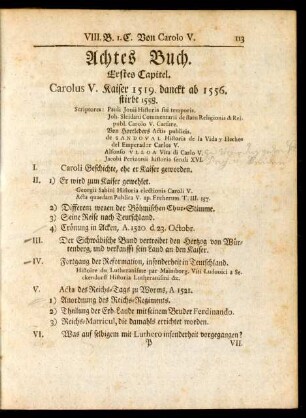 VIII. B. 1. C. Von Carolo V. 113
Achtes Buch.
Erstes Capitel.
Carolus V. Kaiser 1519. danckt ab 1556.
stirbt 1558.
Scriptores: Pauli Jovii Historia sui temporis.
Joh. Sleidani Commentarii de statu Religionis & Rei-
publ. Carolo V. Cæsare.
Von Hortleders Acta publica.
de SANDOVAL Historia de la Vida y Hechos
del Emperador Carlos V.
Alfonso VLLOA Vita di Carlo V.
Jacobi Perizonii historia seculi XVI.
I. Caroli Geschichte, ehe er Kaiser geworden.
II. 1) Er wird zum Kaiser gewehlet.
Georgii Sabini Historia electionis Caroli V.
Acta quædam Publica V. ap. Freherum T. III. 157.
2) Differenz wegen der Böhmischen Chur-Stimme.
3) Seine Reise nach Teutschland.
4) Crönung in Acken, A. 1520. d. 23. Octobr.
III. Der Schwäbische Bund vertreibet den Hertzog von Wür-
tenberg, und verkaufft sein Land an den Kaiser.
IV. Fortgang der Reformation, insonderheit in Teutschland.
Histoire du Lutheranisme par Maimborg. Viti Ludovici a Se-
ckendorff Historia Lutheranismi.
V. Acta des Reichs-Tags zu Worms, A. 1521.
1) Anordnung des Reichs-Regiments.
2) Theilung der Erb-Lande mit seinem Bruder Ferdinando.
3) Reichs-Matricul, die damahls errichtet worden.
VI. Was auf selbigem mit Luthero insonderheit vorgegangen?
P VII.